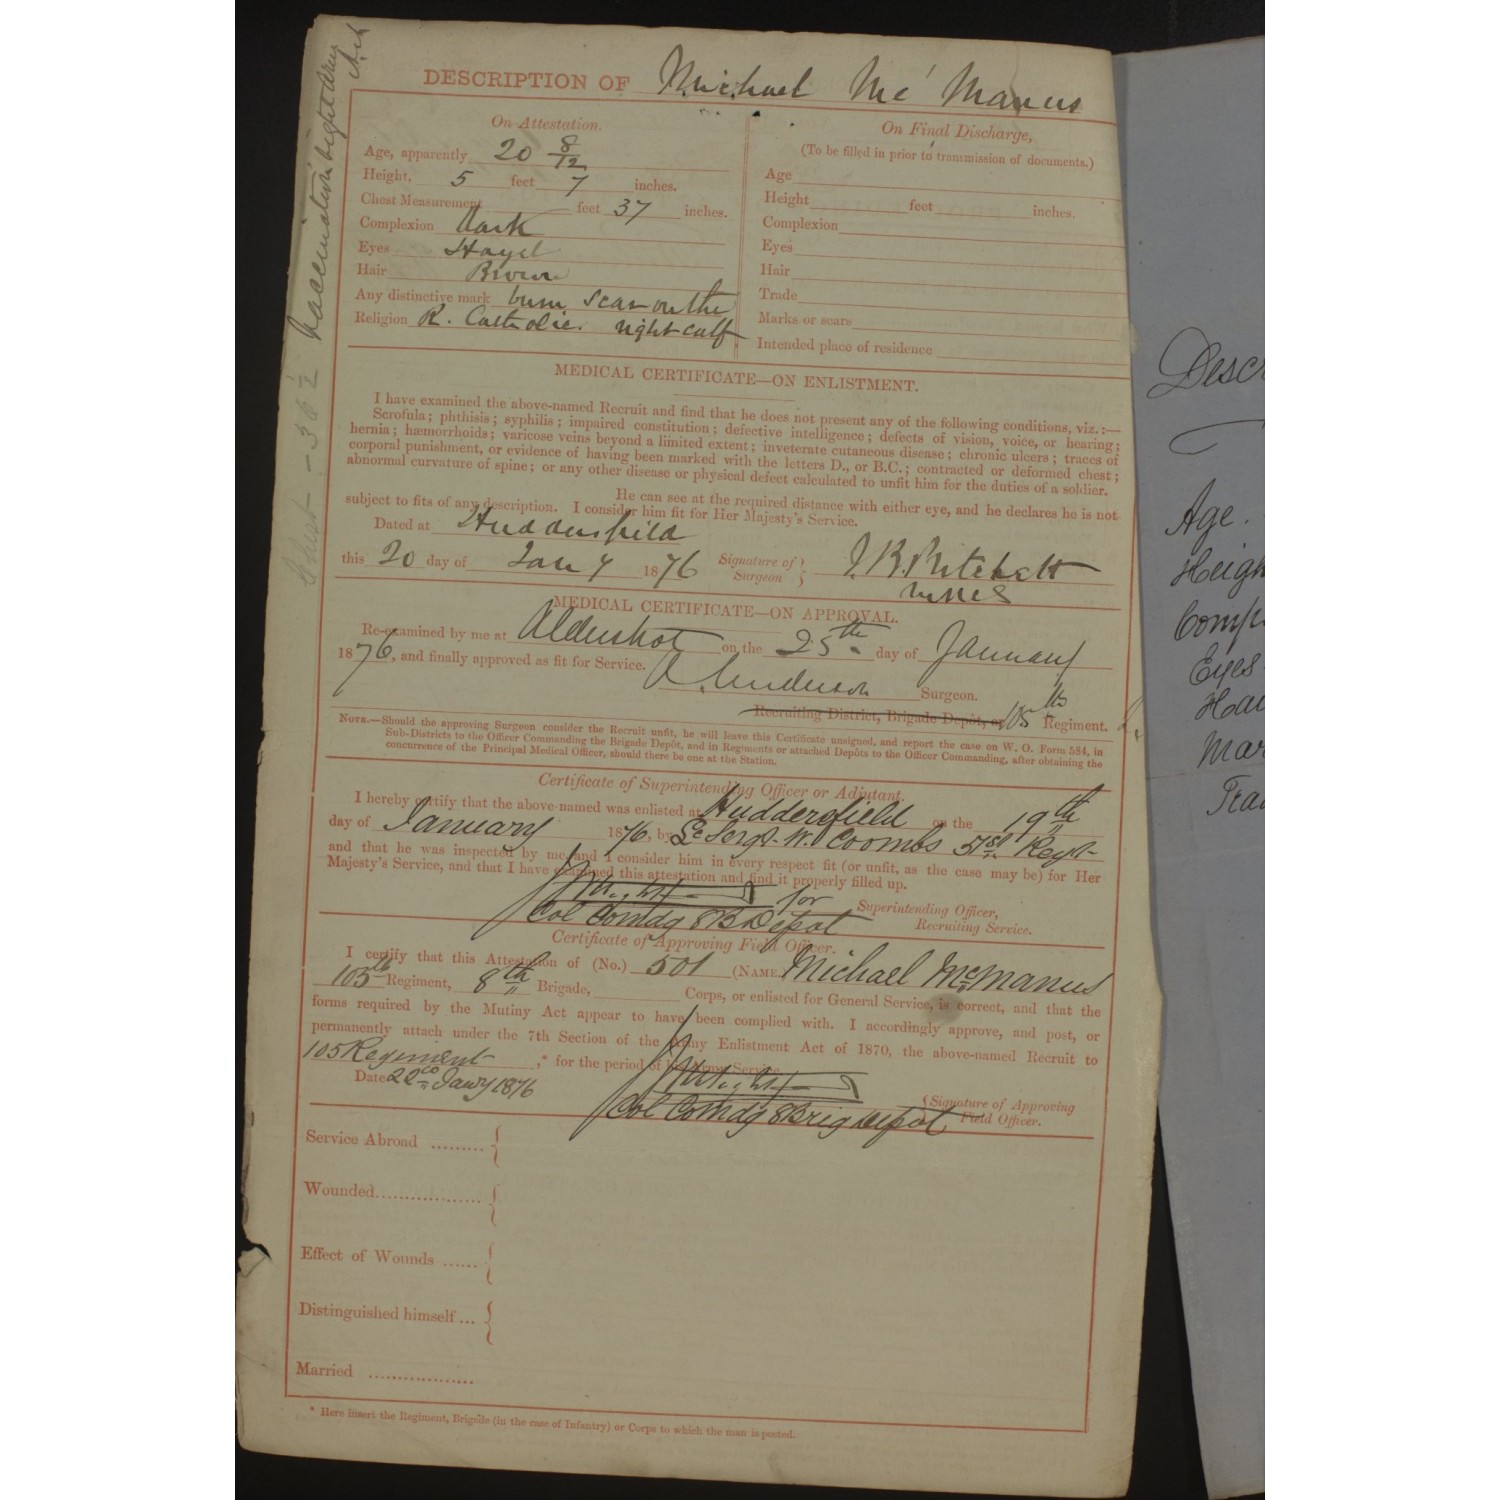 DESCRIPTION OF Michael Mc Manus
On Attestation.
Age, apparently 20 8/12
Height, 5 feet 7 inches.
Chest Measurement feet 37 inches.
Complexion Dark
Eyes Hazel
Hair Brown
Any distinctive mark burn scar on the
Religion R. Catholic. right calf
On Final Discharge,
(To be filled in prior to transmission of documents.)
Age
Height feet inches.
Complexion
Eyes
Hair
Trade
Marks or scars
Intended place of residence
MEDICAL CERTIFICATE—ON ENLISTMENT.
I have examined the above-named Recruit and find that he does not present any of the following conditions, viz.:—
Scrofula; phthisis; syphilis; impaired constitution; defective intelligence; defects of vision, voice, or hearing;
hernia; hæmorrhoids; varicose veins beyond a limited extent; inveterate cutaneous disease; chronic ulcers; traces of
corporal punishment, or evidence of having been marked with the letters D., or B.C.; contracted or deformed chest;
abnormal curvature of spine; or any other disease or physical defect calculated to unfit him for the duties of a soldier.
He can see at the required distance with either eye, and he declares he is not
subject to fits of any description. I consider him fit for Her Majesty's Service.
Dated at Huddersfield
this 20 day of Jany 1876 Signature of Surgeon
MEDICAL CERTIFICATE—ON APPROVAL.
Re-examined by me at Aldershot on the 25th day of January
1876, and finally approved as fit for Service.
A. Anderson Surgeon.
Recruiting District, Brigade Depôt, or 105th Regiment.
NOTE.—Should the approving Surgeon consider the Recruit unfit, he will leave this Certificate unsigned, and report the case on W. O. Form 584, in
Sub-Districts to the Officer Commanding the Brigade Depôt, and in Regiments or attached Depôts to the Officer Commanding, after obtaining the
concurrence of the Principal Medical Officer, should there be one at the Station.
Certificate of Superintending Officer or Adjutant.
I hereby certify that the above-named was enlisted at Huddersfield on the 19th
day of January 1876, by Sergt. W. Coombs 51st Regt
and that he was inspected by me, and I consider him in every respect fit (or unfit, as the case may be) for Her
Majesty's Service, and that I have examined this attestation and find it properly filled up.
for Superintending Officer,
Col Comdg 8 B Depot Recruiting Service.
Certificate of Approving Field Officer.
I certify that this Attestation of (No.) 501 (NAME) Michael McManus
105th Regiment, 8th Brigade, Corps, or enlisted for General Service, is correct, and that the
forms required by the Mutiny Act appear to have been complied with. I accordingly approve, and post, or
permanently attach under the 7th Section of the Army Enlistment Act of 1870, the above-named Recruit to
105 Regiment ,* for the period of his Army Service.
Date 22nd Jany 1876
Col Comdg 8 Brig Depot Signature of Approving Field Officer.
Service Abroad
Wounded
Effect of Wounds
Distinguished himself
Married
* Here insert the Regiment, Brigade (in the case of Infantry) or Corps to which the man is posted.
Vaccination right arm
Age.
Eyes